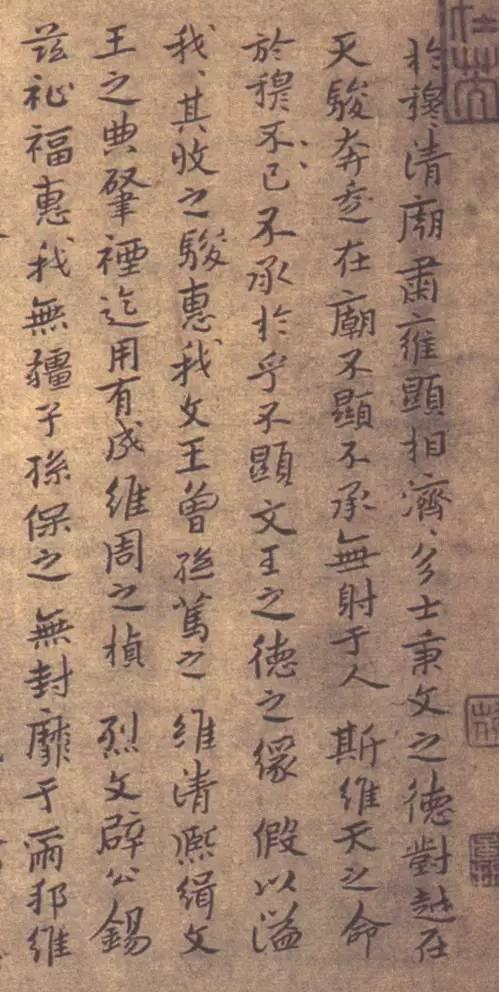 於穆、清廟肅、雍顯相濟、多士秉文之德對越在
天駿奔走在廟不顯不承無射于人 斯維天之命
於穆不已不承於乎不顯文王之德之純 假以溢
我、其收之駿惠我文王曾孫篤之 維清熙緝文
王之典肇禋迄用有成維周之楨 烈文辟公錫
茲祉福惠我無疆子孫保之 無封靡于爾邦維